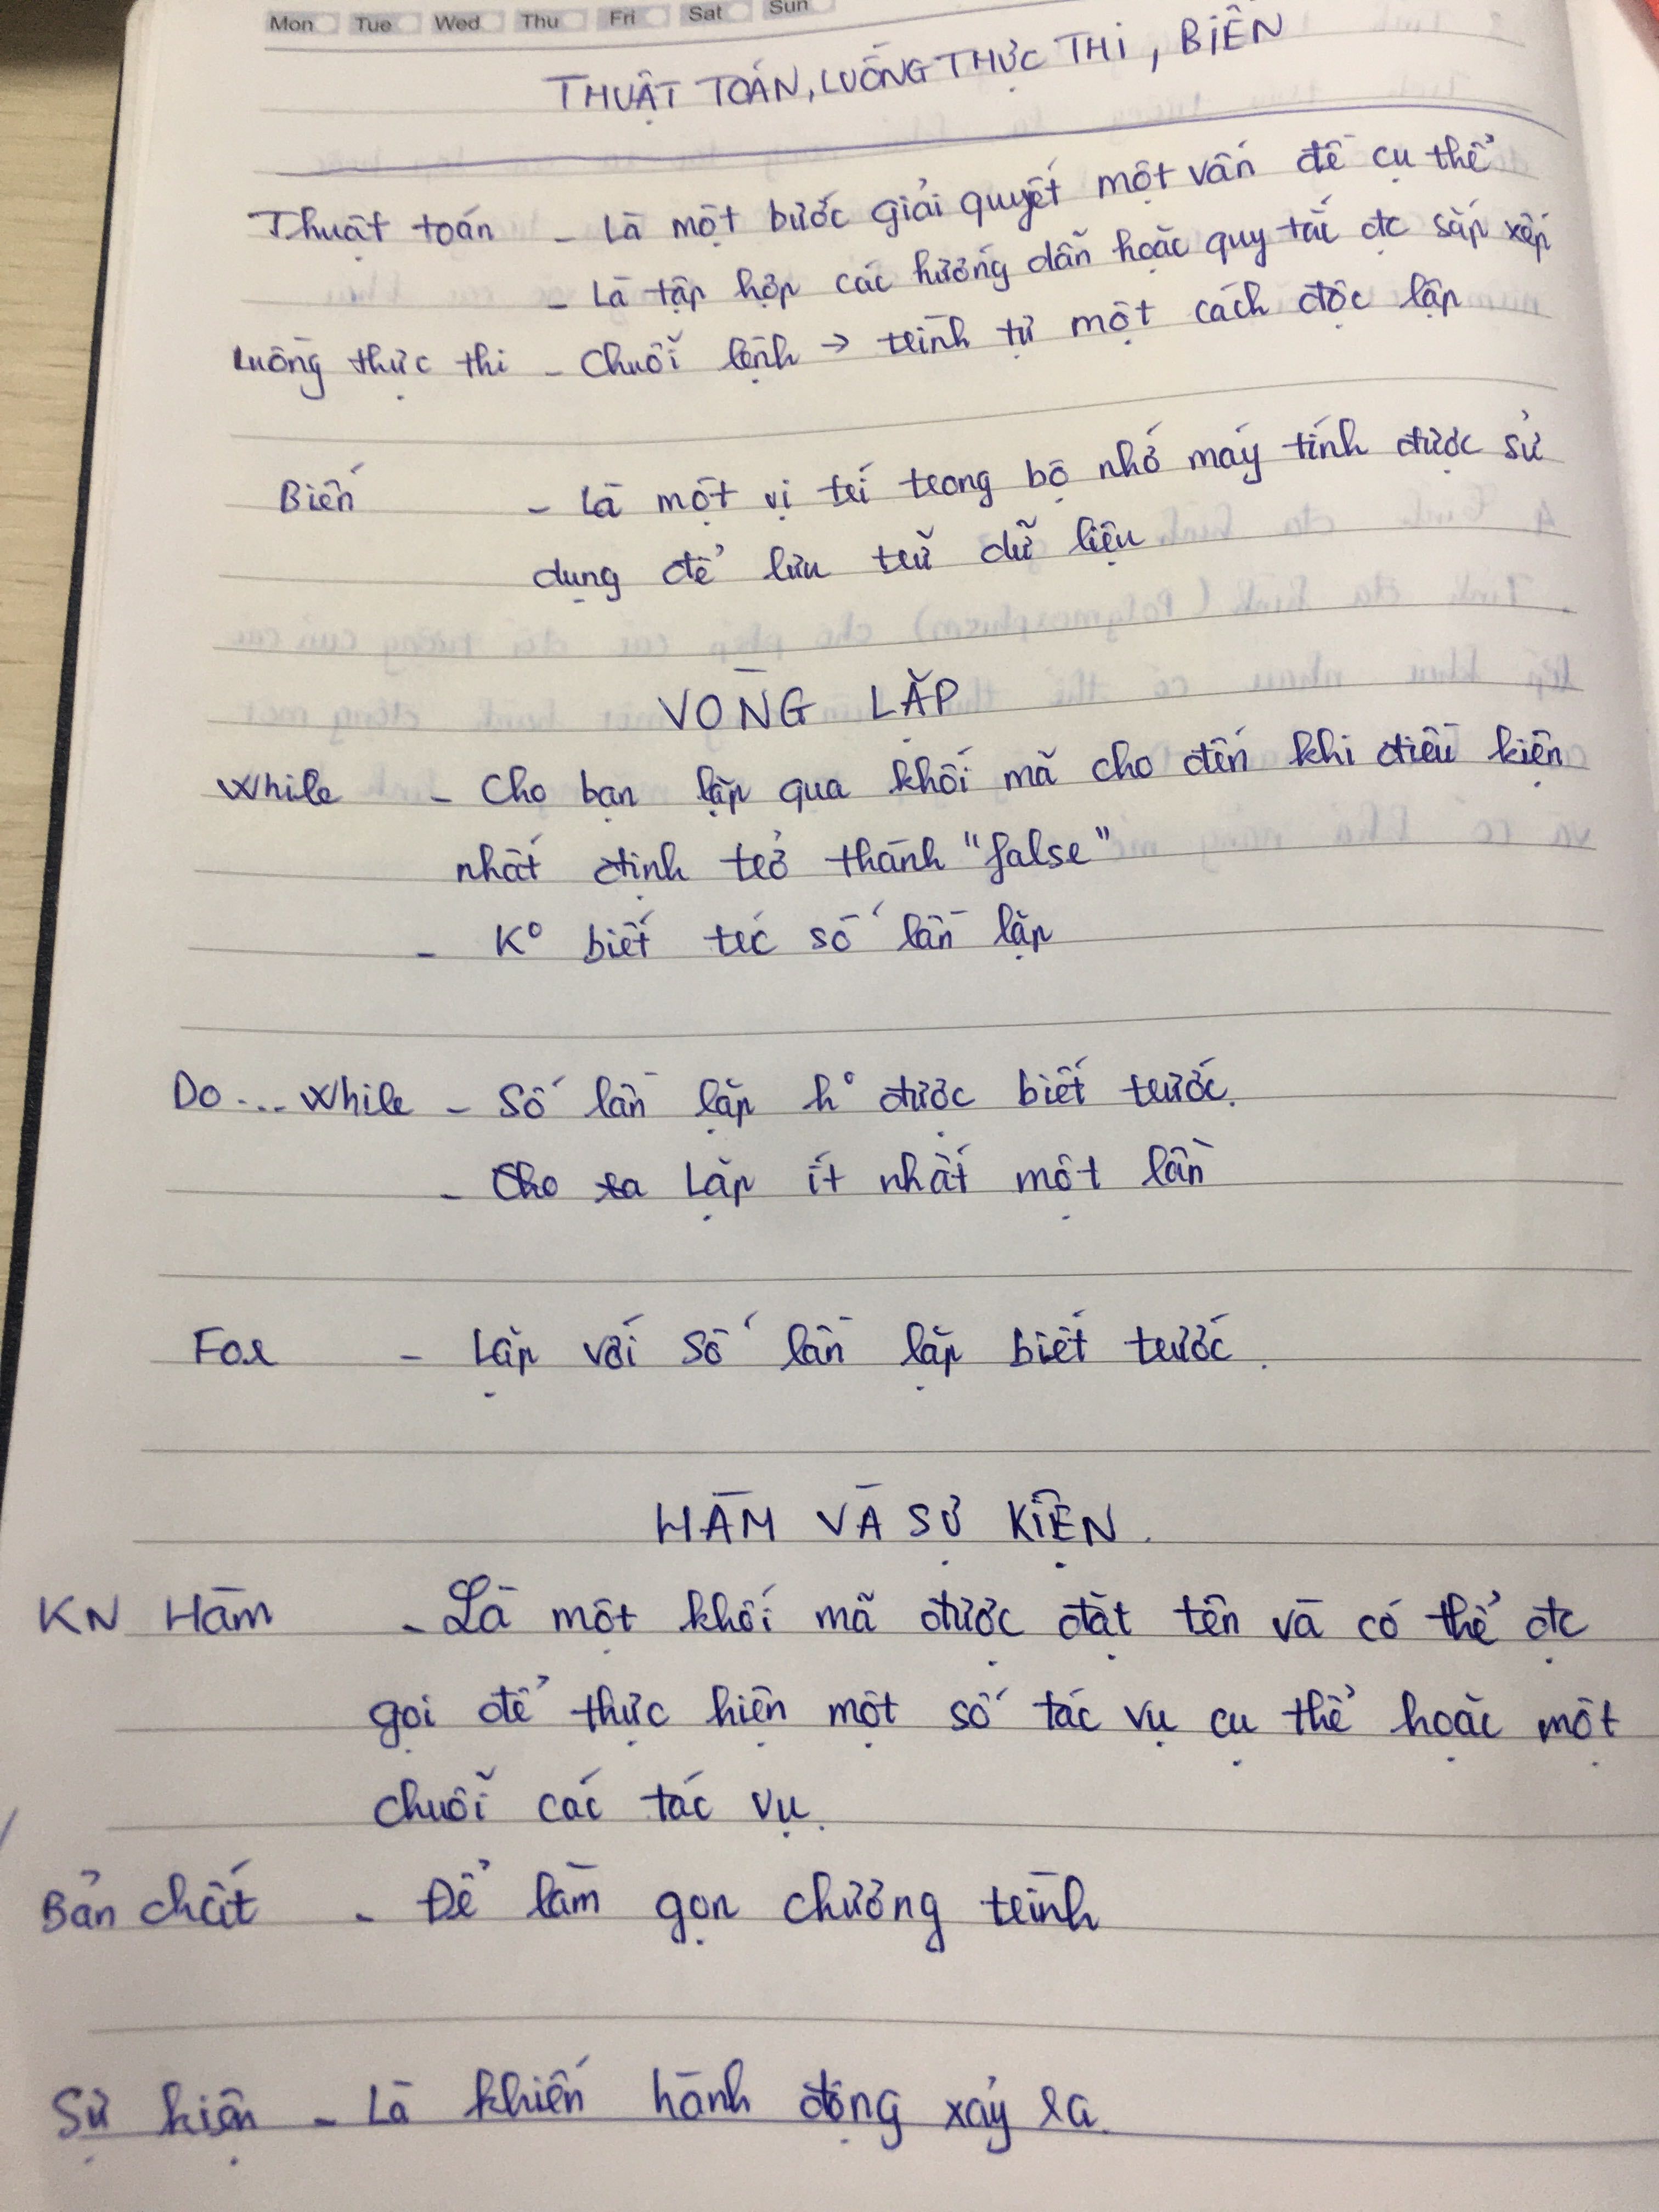 Mon Tue Wed Thu Fri Sat Sun
THUẬT TOÁN, LUỒNG THỰC THI, BIẾN
Thuật toán - Là một bước giải quyết một vấn đề cụ thể
- Là tập hợp các hướng dẫn hoặc quy tắc đc sắp xếp
Luồng thực thi - Chuỗi lệnh → trình tự một cách độc lập
Biến - Là một vị trí trong bộ nhớ máy tính được sử
dụng để lưu trữ dữ liệu
VÒNG LẶP
While - Cho bạn lặp qua khối mã cho đến khi điều kiện
nhất định trở thành "false"
- K° biết trc số lần lặp
Do... While - Số lần lặp k° được biết trước.
- Cho ta Lặp ít nhất một lần
For - Lặp với số lần lặp biết trước.
HÀM VÀ SỰ KIỆN.
KN Hàm - Là một khối mã được đặt tên và có thể đc
gọi để thực hiện một số tác vụ cụ thể hoặc một
chuỗi các tác vụ.
Bản chất - Để làm gọn chương trình
Sự kiện - Là khiến hành động xảy ra.